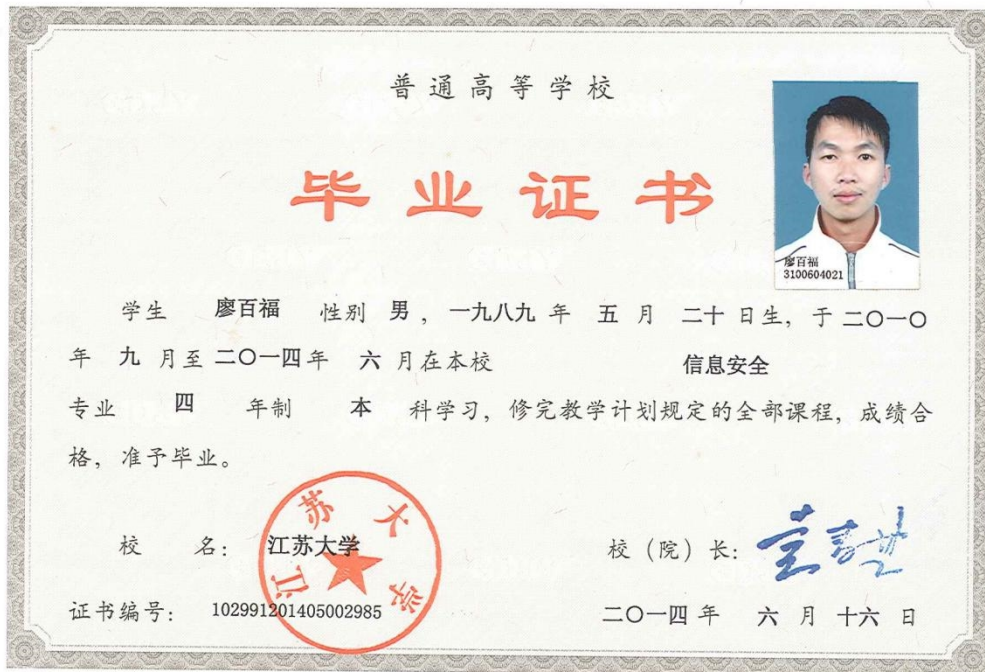 普通高等学校
毕业证书
廖百福
3100604021
学生 廖百福 性别 男，一九八九 年 五 月 二十 日生，于 二〇一〇
年 九 月至 二〇一四 年 六 月在本校 信息安全
专业 四 年制 本 科学习，修完教学计划规定的全部课程，成绩合
格，准予毕业。
江苏大学
校 名： 江苏大学 校（院）长：
证书编号： 102991201405002985 二〇一四 年 六 月 十六 日